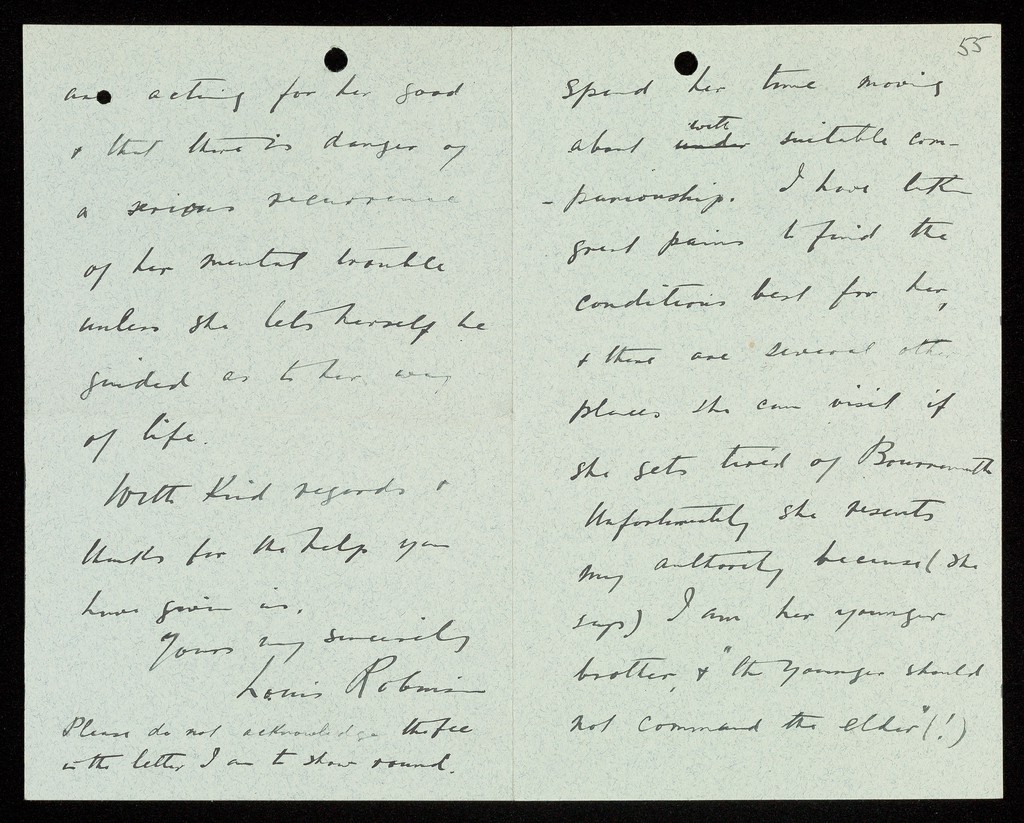 55
are acting for her good
& that there is danger of
a serious recurrence
of her mental trouble
unless she lets herself be
guided as to her way
of life.
With kind regards &
thanks for the help you
have given us.
Yours very sincerely
Louis Robinson
Please do not acknowledge the fee
in the letter I am to show round.
spend her time moving
about under with suitable com-
-panionship. I have taken
great pains to find the
conditions best for her,
& there are several other
places she can visit if
she gets tired of Bournemouth
Unfortunately she resents
my authority because (she
says) I am her younger
brother, & "the younger should
not command the elder" (!)